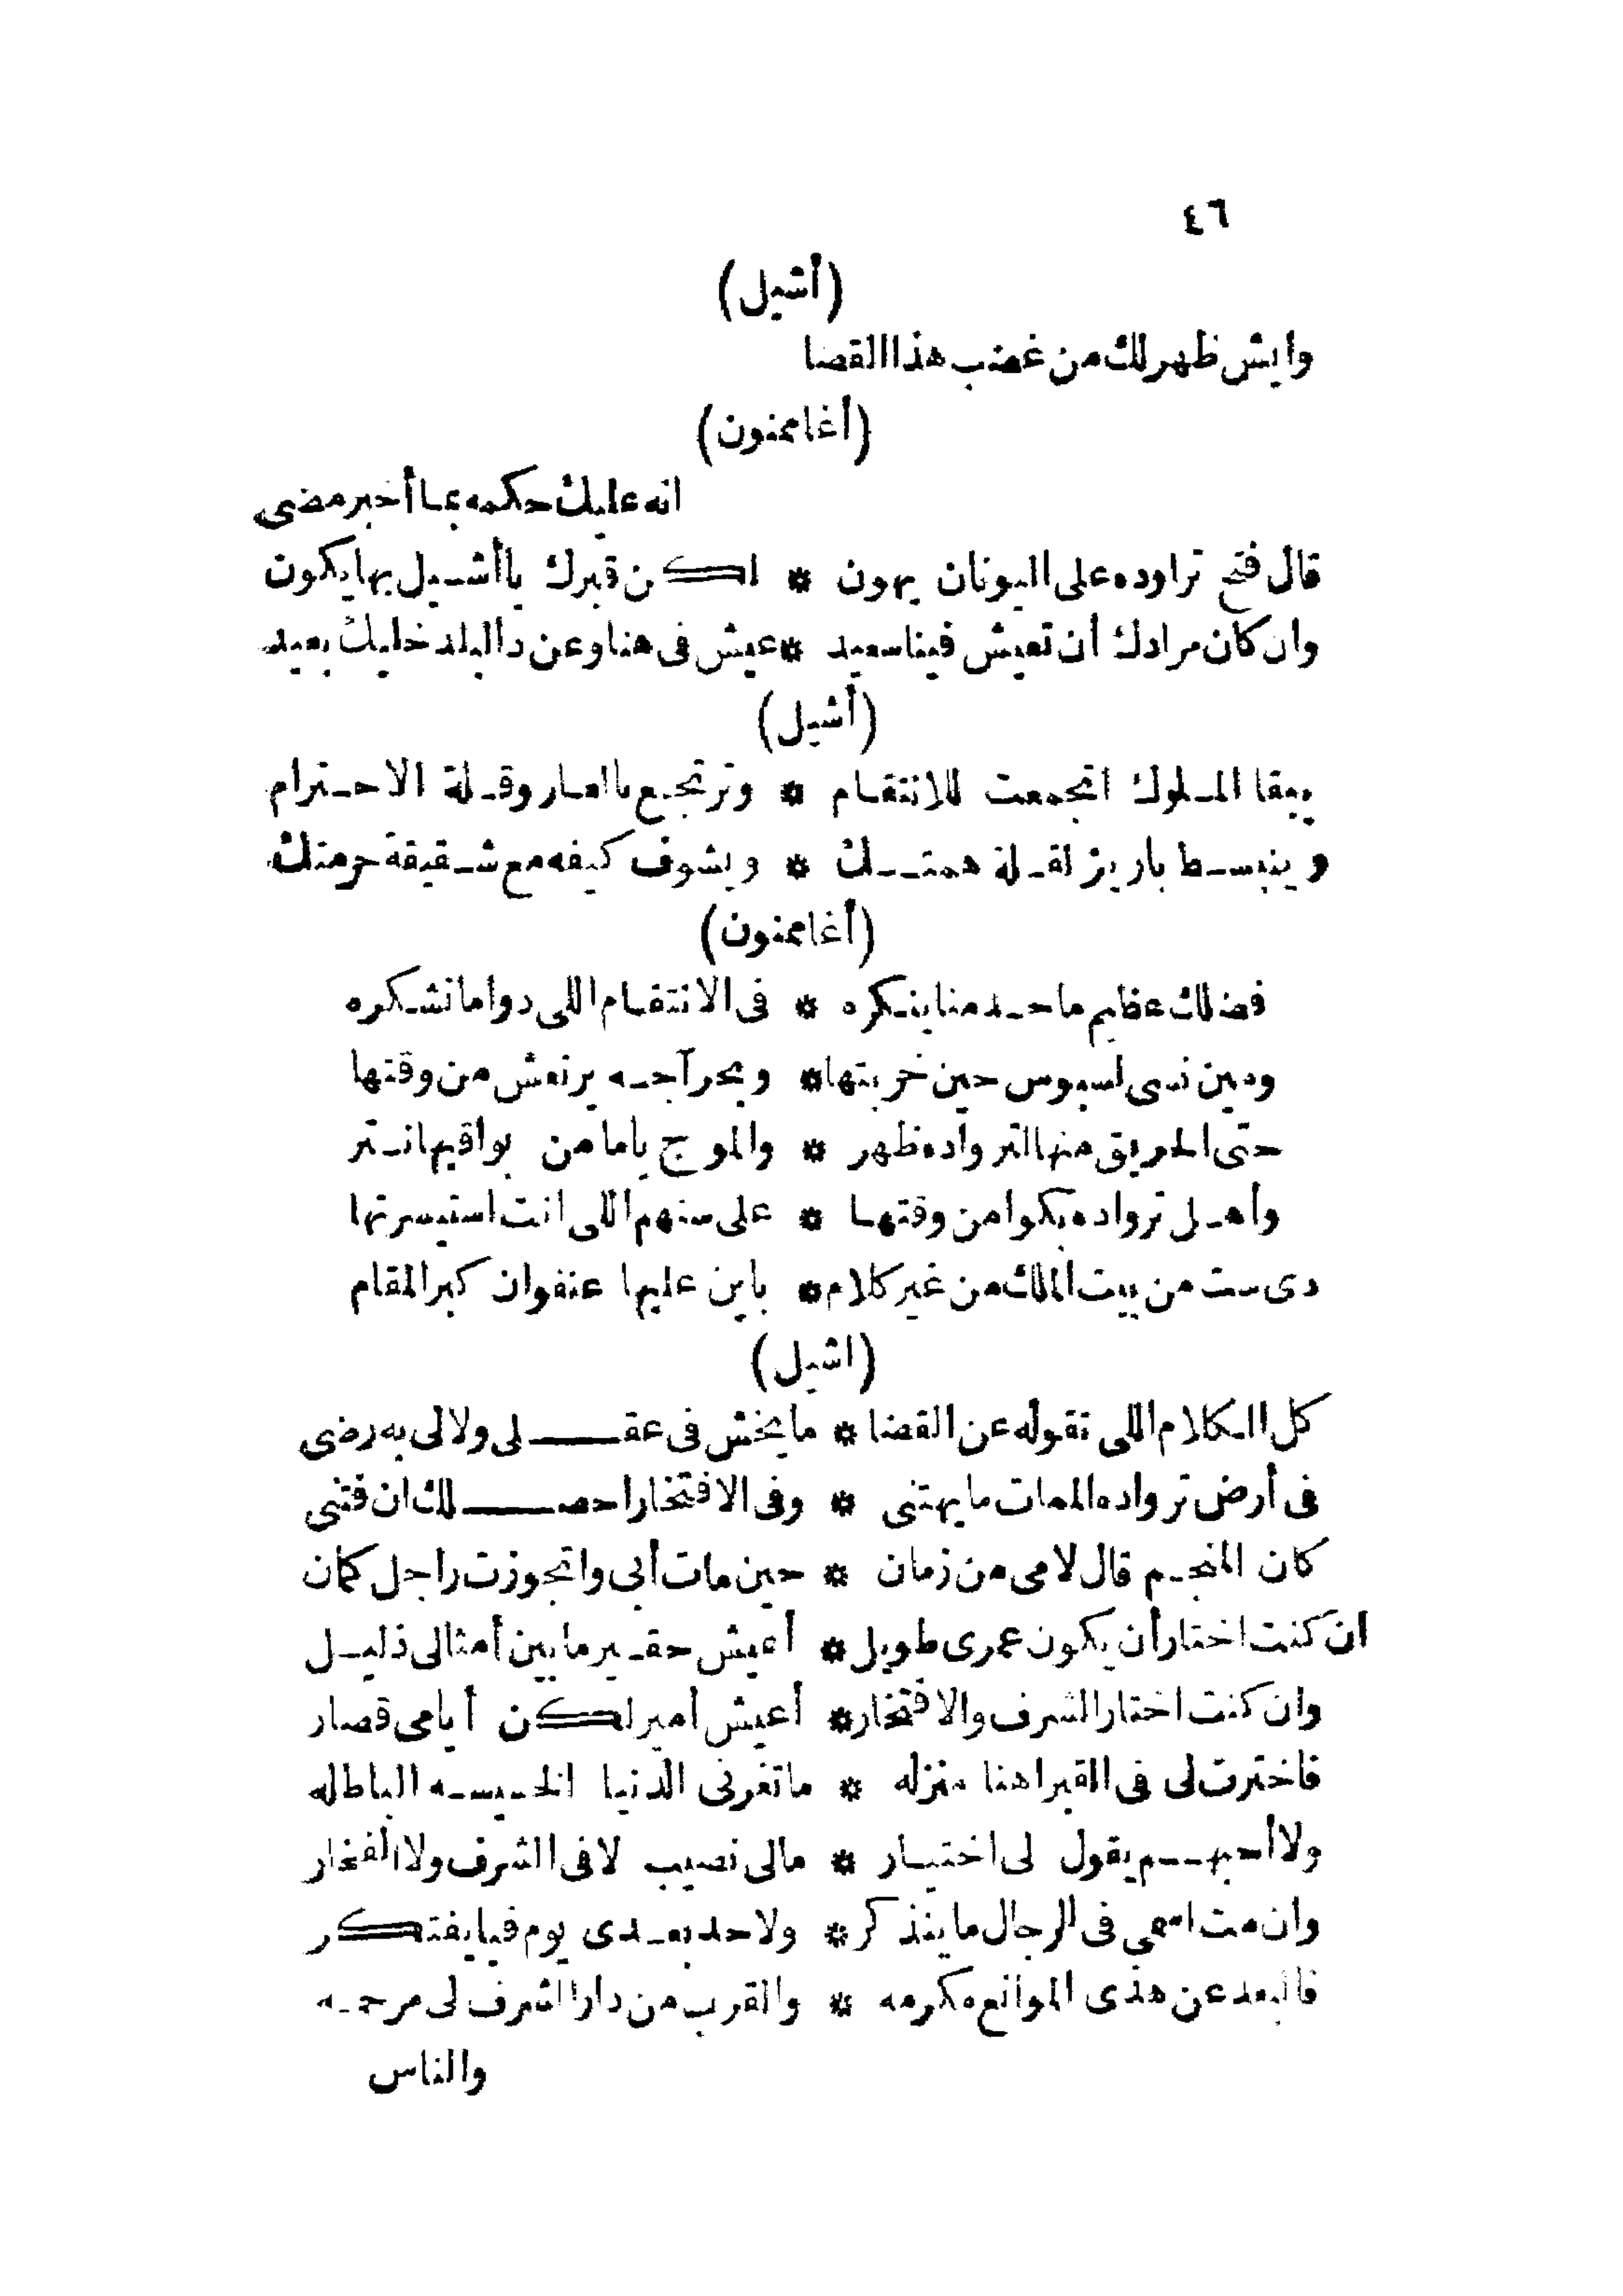 ٤٦
(أشيل)
وايش ظهر لك من غضب هذا القضا
(أغاممنون)
انه عليك حكمه بما أخبر مضى
قال فتح تراوده على اليونان يهون * لكن قبرك يا أشيل بها يكون
وان كان مرادك أن تعيش فينا سعيد * عيش فى هنا وعن دا البلد خليك بعيد
(أشيل)
يبقا الملوك اتجمعت للانتقام * وترتجع بالعار وقلة الاحترام
وينبسط باريز لقلة همتك * ويشوف كيفه مع شقيقة حرمتك
(أغاممنون)
فضلك عظيم ما حد منا ينكره * فى الانتقام اللى دواما نشكره
ومين نسى لسبوس حين خربتها * وبحر آجه يرتعش من وقتها
حتى الحريق منها الترواده ظهر * والموج ياما من بواقيها نتر
وأهل ترواده بكوا من وقتها * على ستهم اللى انت استيسرتها
دى ست من بيت الملك من غير كلام * باين عليها عنفوان كبر المقام
(اشيل)
كل الكلام اللى تقوله عن القضا * ما يخش فى عقلى ولا لى به رضى
فى أرض ترواده الممات ما يهتنى * وفى الافتخار احصلك ان فتنى
كان المنجم قال لامى من زمان * حين مات أبى واتجوزت راجل كمان
ان كنت اختار أن يكون عمرى طويل * أعيش حقير ما بين أمثالى ذليل
وان كنت اختار الشرف والافتخار * أعيش أمير لكن أيامى قصار
فاخترت لى فى القبر اهنا منزله * ما تغرنى الدنيا الخسيسه الباطله
ولا أحبهم يقول لى اختيار * مالى نصيب لا فى الشرف ولا الفخار
وان مت اسمى فى الرجال ما ينذكر * ولا حد بعدى يوم فيا يفتكر
فالبعد عن هذى الموانع مكرمه * والقرب من دار الشرف لى مرحمه
والناس